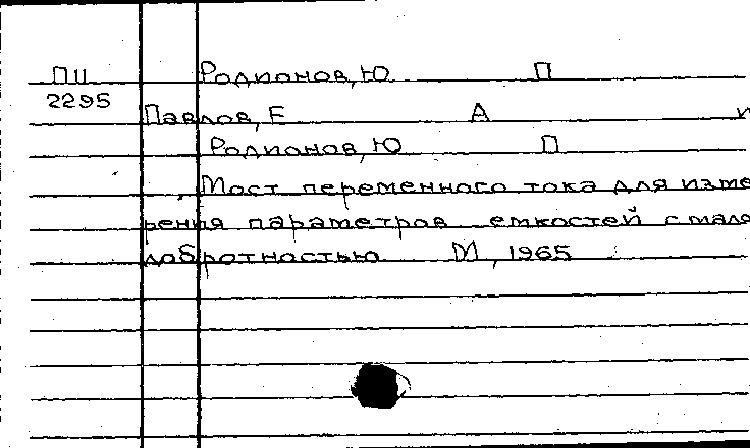 ПИ Родионов, Ю П
2295
Павлов, Е А и
Родионов, Ю П
Мост переменного тока для изме
рения параметров емкостей с мало
добротностью М, 1965